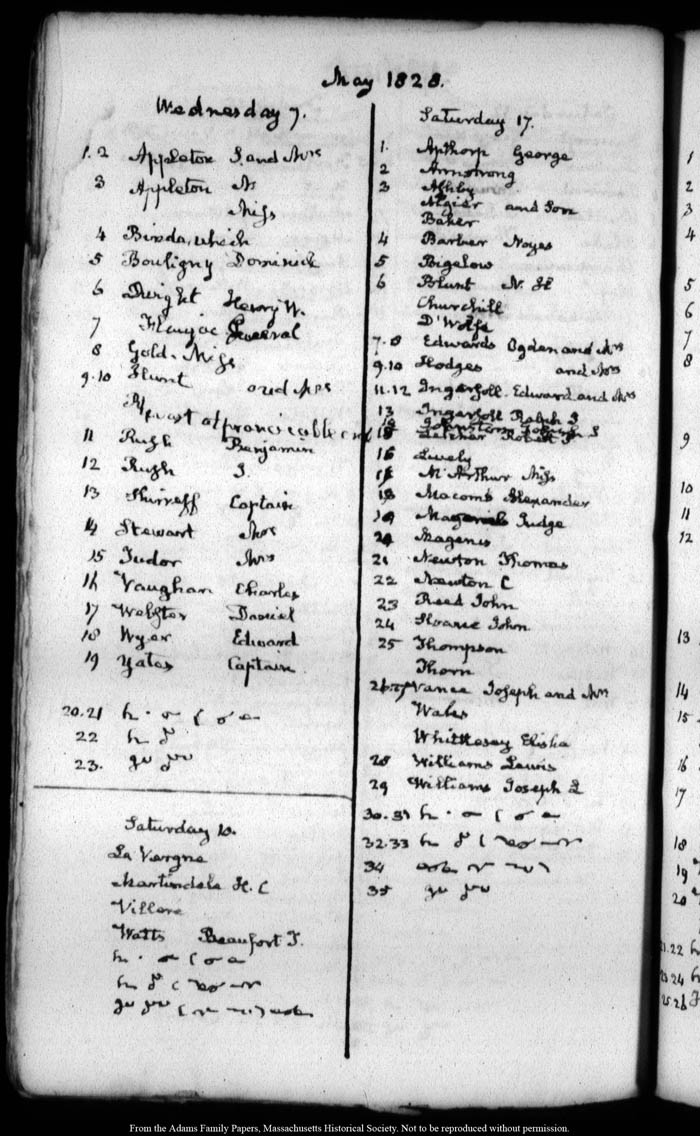 May 1828.
Wednesday 7.
1.2 Appleton S. and Mrs
3 Appleton N
Miss
4 Binda, which
5 Bouligny Dominick
6 Dwight Henry W.
7 General
8 Gold. Miss
9.10 Hunt and Mrs
11 Rush Benjamin
12 Rush J.
13 Shirreff Captain
14 Stewart Mrs
15 Tudor Mrs
16 Vaughan Charles
17 Webster Daniel
18 Wyer Edward
19 Yates Captain
20.21
22
23.
Saturday 10.
La Vergne
Martindale H. C
Villere
Watts Beaufort T.
Saturday 17.
1. Apthorp George
2 Armstrong
3 Ashby
Algier and Son
Baker
4 Barber Noyes
5 Bigelow
6 Blunt N. H
Churchill
D'Wolfe
7.8 Edwards Ogden and Mrs
9.10 Hodges and Mrs
11.12 Ingersoll Edward and Mrs
13 Ingersoll Ralph I
15 Letcher Robert P
16 Lively
M'Arthur Miss
18 Macomb Alexander
19 Judge
20 Magenis
21 Newton Thomas
22 Newton C
23 Reed John
24 Sloane John
25 Thompson
Thorn
26.27 Vance Joseph and Mrs
Wales
Whittlesey Elisha
28 Williams Lewis
29 Williams Joseph L
30.31
32.33
34
35
1
2
3
4
5
6
7
8
9
10
11
12
13
14
15
16
17
18
19
20
21.22
23 24
25.26
From the Adams Family Papers, Massachusetts Historical Society. Not to be reproduced without permission.